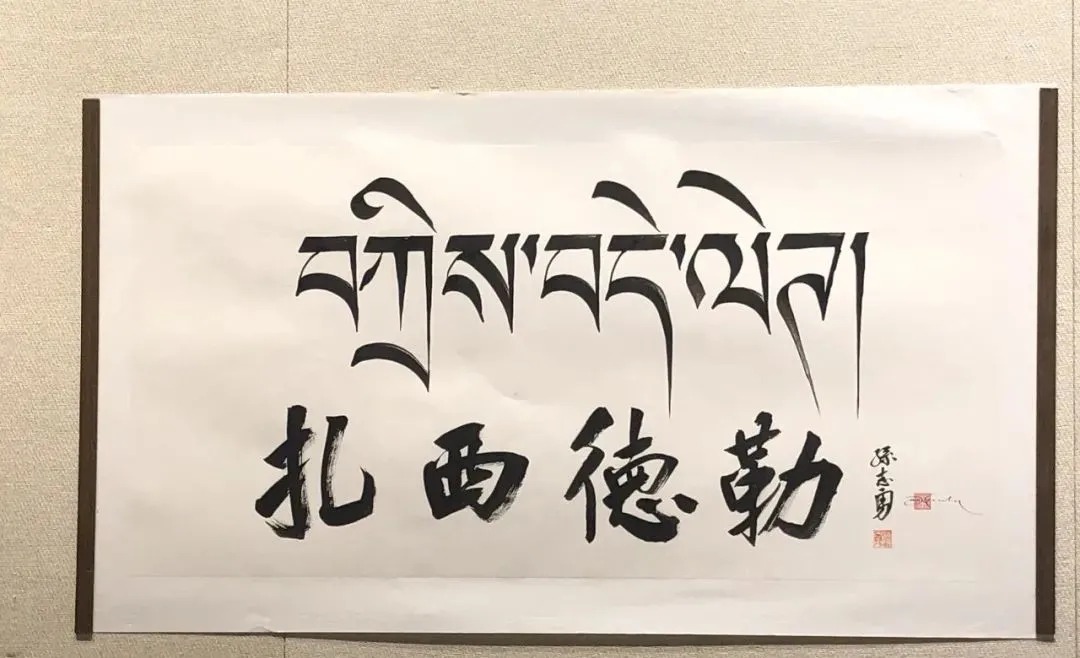 བཀྲིས་བདེ་ལེན།
扎西德勒
孫志勇